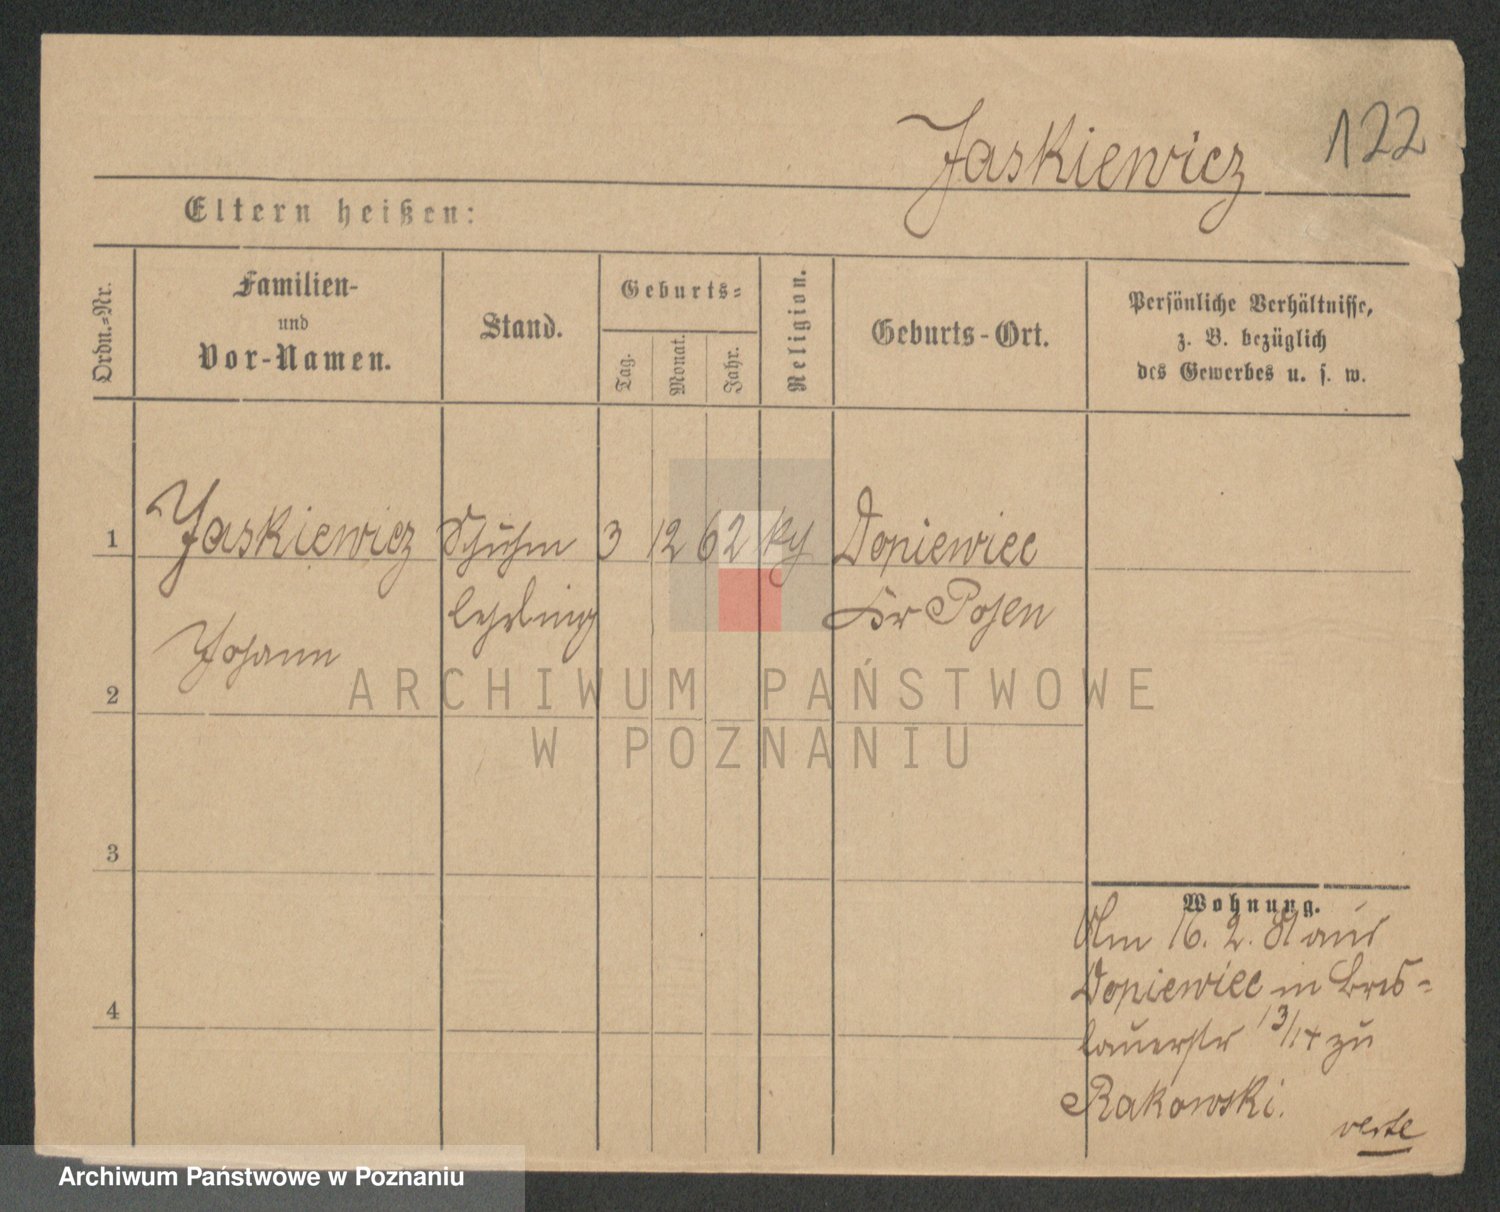 Jaskiewicz 122
Eltern heißen:
Ordn.-Nr.
Familien-
und
Vor-Namen.
Stand.
Geburts-
Tag.
Monat.
Jahr.
Religion.
Geburts-Ort.
Persönliche Verhältnisse,
z. B. bezüglich
des Gewerbes u. s. w.
1 Jaskiewicz Schuhm 3 12 62 ky Dopiewiec
lehrling Kr Posen
Johann
2
ARCHIWUM PAŃSTWOWE
W POZNANIU
3
4
Wohnung.
Am 16. 2. 81 aus
Dopiewiec in Bres-
lauerstr 13/14 zu
Rakowski.
verte
Archiwum Państwowe w Poznaniu